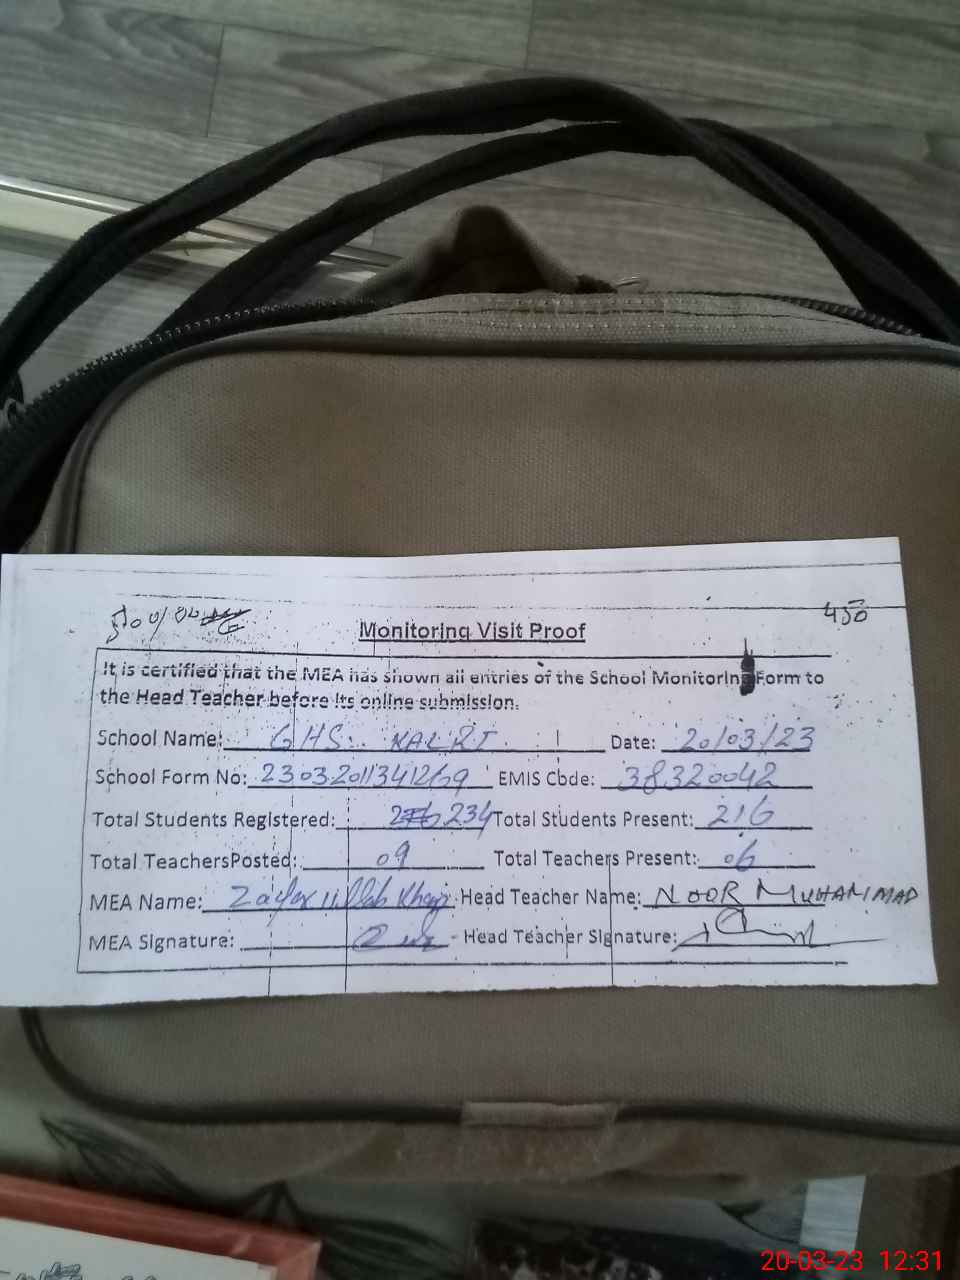 450
Monitoring Visit Proof
It is certified that the MEA has shown all entries of the School Monitoring Form to
the Head Teacher before its online submission.
School Name: GHS. KALRI Date: 20/03/23
School Form No: 23032011341269 EMIS Code: 38320042
Total Students Registered: 234 Total Students Present: 216
Total TeachersPosted: 09 Total Teachers Present: 06
MEA Name: Zafar ullah Khan Head Teacher Name: NOOR MUHAMMAD
MEA Signature: Head Teacher Signature:
20-03-23 12:31